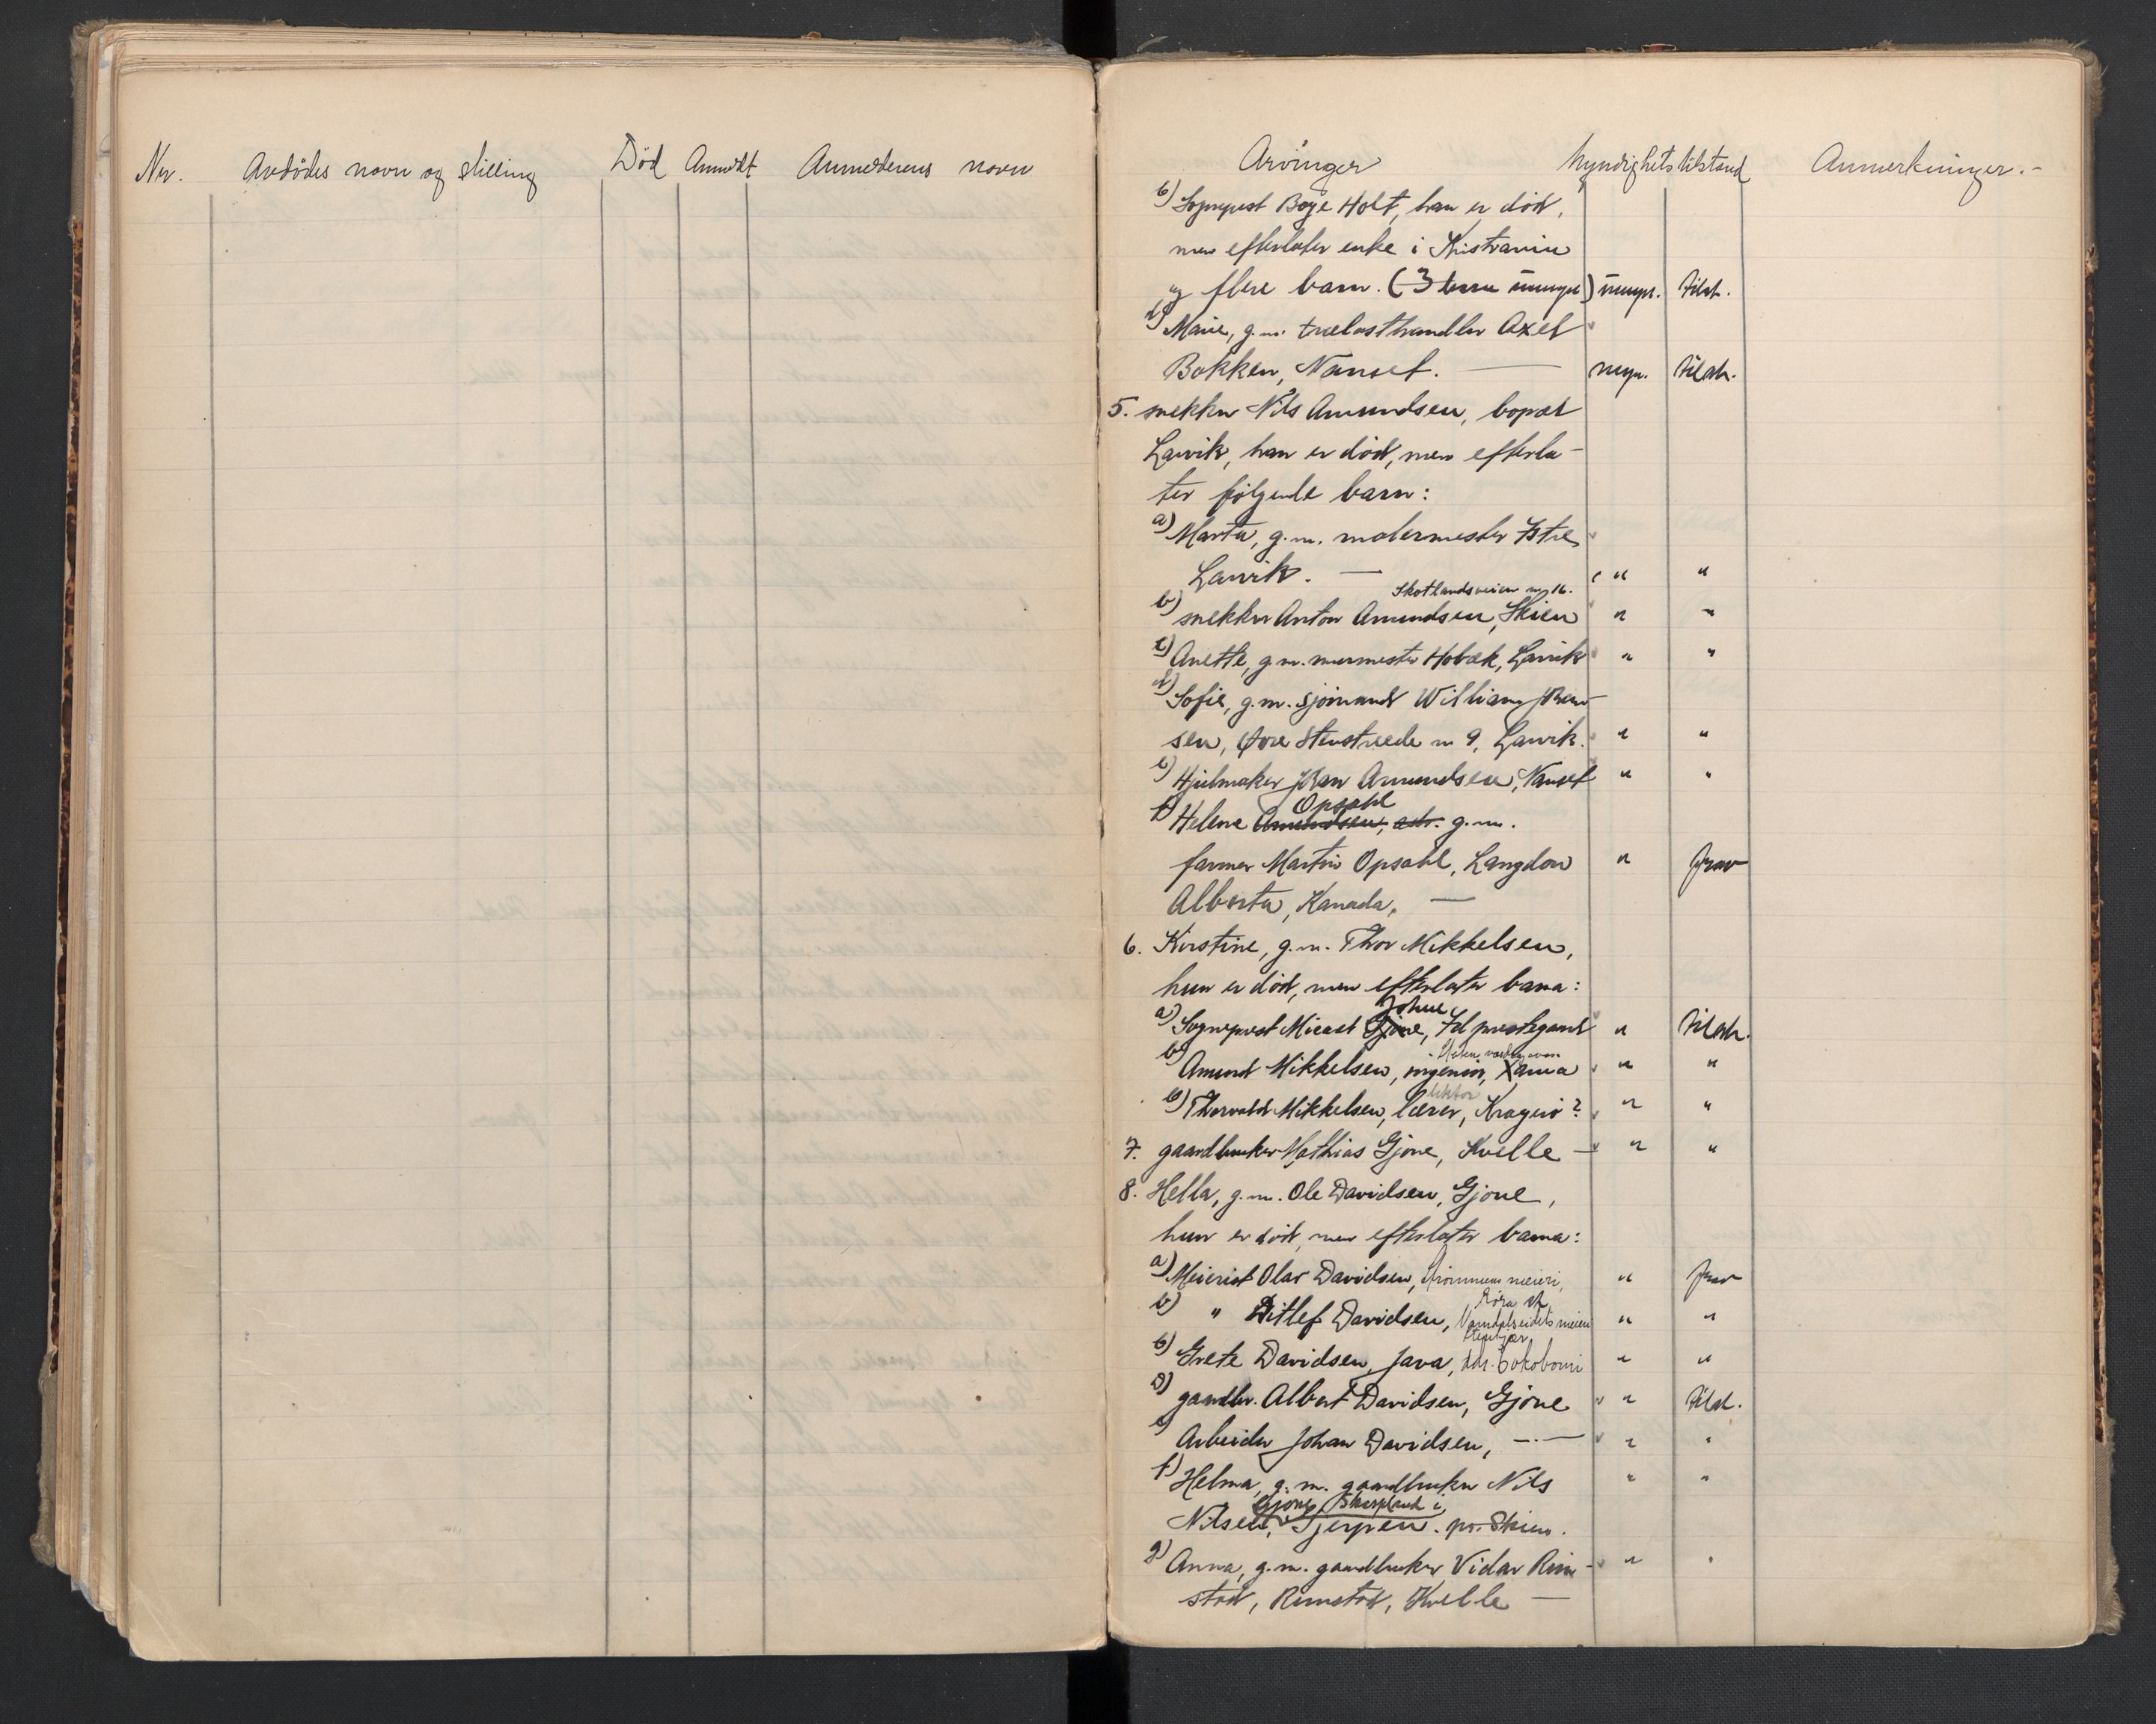 Nr. Avdødes navn og stilling Død Anmeldt Anmelderens navn
Arvinger Myndighetstilstand Anmerkninger.-
c) Sogneprest Boye Holt, han er død,
men efterlater enke i Kristiania
og flere barn. (3 barn umynd) umynd. tilst.
d) Marie, g.m. trælasthandler Axel
Bakken, Nanset. — myn. tilst.
5. snekker Nils Amundsen, bopæl
Larvik, han er død, men efterla-
ter følgende barn:
a) Marta, g.m. malermester Istre
Larvik. — " "
Skotlandsveien nr 16.
b) snekker Anton Amundsen, Skien " "
c) Anette, g.m. murmester Hobæk, Larvik " "
d) Sofie, g.m. sjømand William Johan-
sen, Øvre Stenstræde nr 9, Larvik. " "
e) Hjulmaker Johan Amundsen, Nanset " "
Opsahl
f) Helene Amundsen, adr. g.m.
farmer Martin Opsahl, Langdon " frav
Alberta, Kanada, —
6. Kirstine, g.m. Thor Mikkelsen,
hun er død, men efterlater barna:
a) Sogneprest Gjone, Id prestegaard " tilst.
b) Amund Mikkelsen, ingeniør, " "
lektor
c) Thorvald Mikkelsen, lærer, Kragerø? " "
7. gaardbruker Mathias Gjone, Kvelle — " "
8. Hella, g.m. Ole Davidsen, Gjone,
hun er død, men efterlater barna:
a) Meierist Olav Davidsen, Strømmens meieri, " frav
Røra st.
b) " Ditlef Davidsen, Namdalseidets meieri " "
Stenkjær
c) Grete Davidsen, Java, adr. Sokobomi " "
d) gaardbr. Albert Davidsen, Gjone " tilst.
e) Arbeider Johan Davidsen, —.— " "
f) Helma, g.m. gaardbruker Nils " "
Gjone, i
Nilsen, Gjerpen. pr. Skien.
g) Anna, g.m. gaardbruker Vidar Rim- " "
stad, Rimstad, Kvelle —